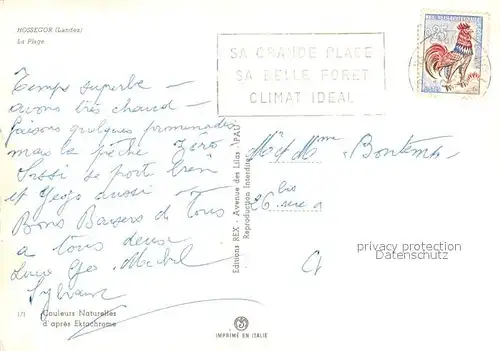 HOSSEGOR (Landes)
La Plage
SA GRANDE PLAGE
SA BELLE FORET
CLIMAT IDEAL
Temps superbe –
avons très chaud –
faisons quelques promenades
mais la pêche Zéro
se porte bien
et aussi –
Bons Baisers de Tous
à tous deux
Michel
Sylviane
Mr et Mme Bontemps
26 bis rue
Editions REX - Avenue des Lilas - PAU
Reproduction Interdite
privacy protection
Datenschutz
171 Couleurs Naturelles
d'après Ektachrome
IMPRIMÉ EN ITALIE